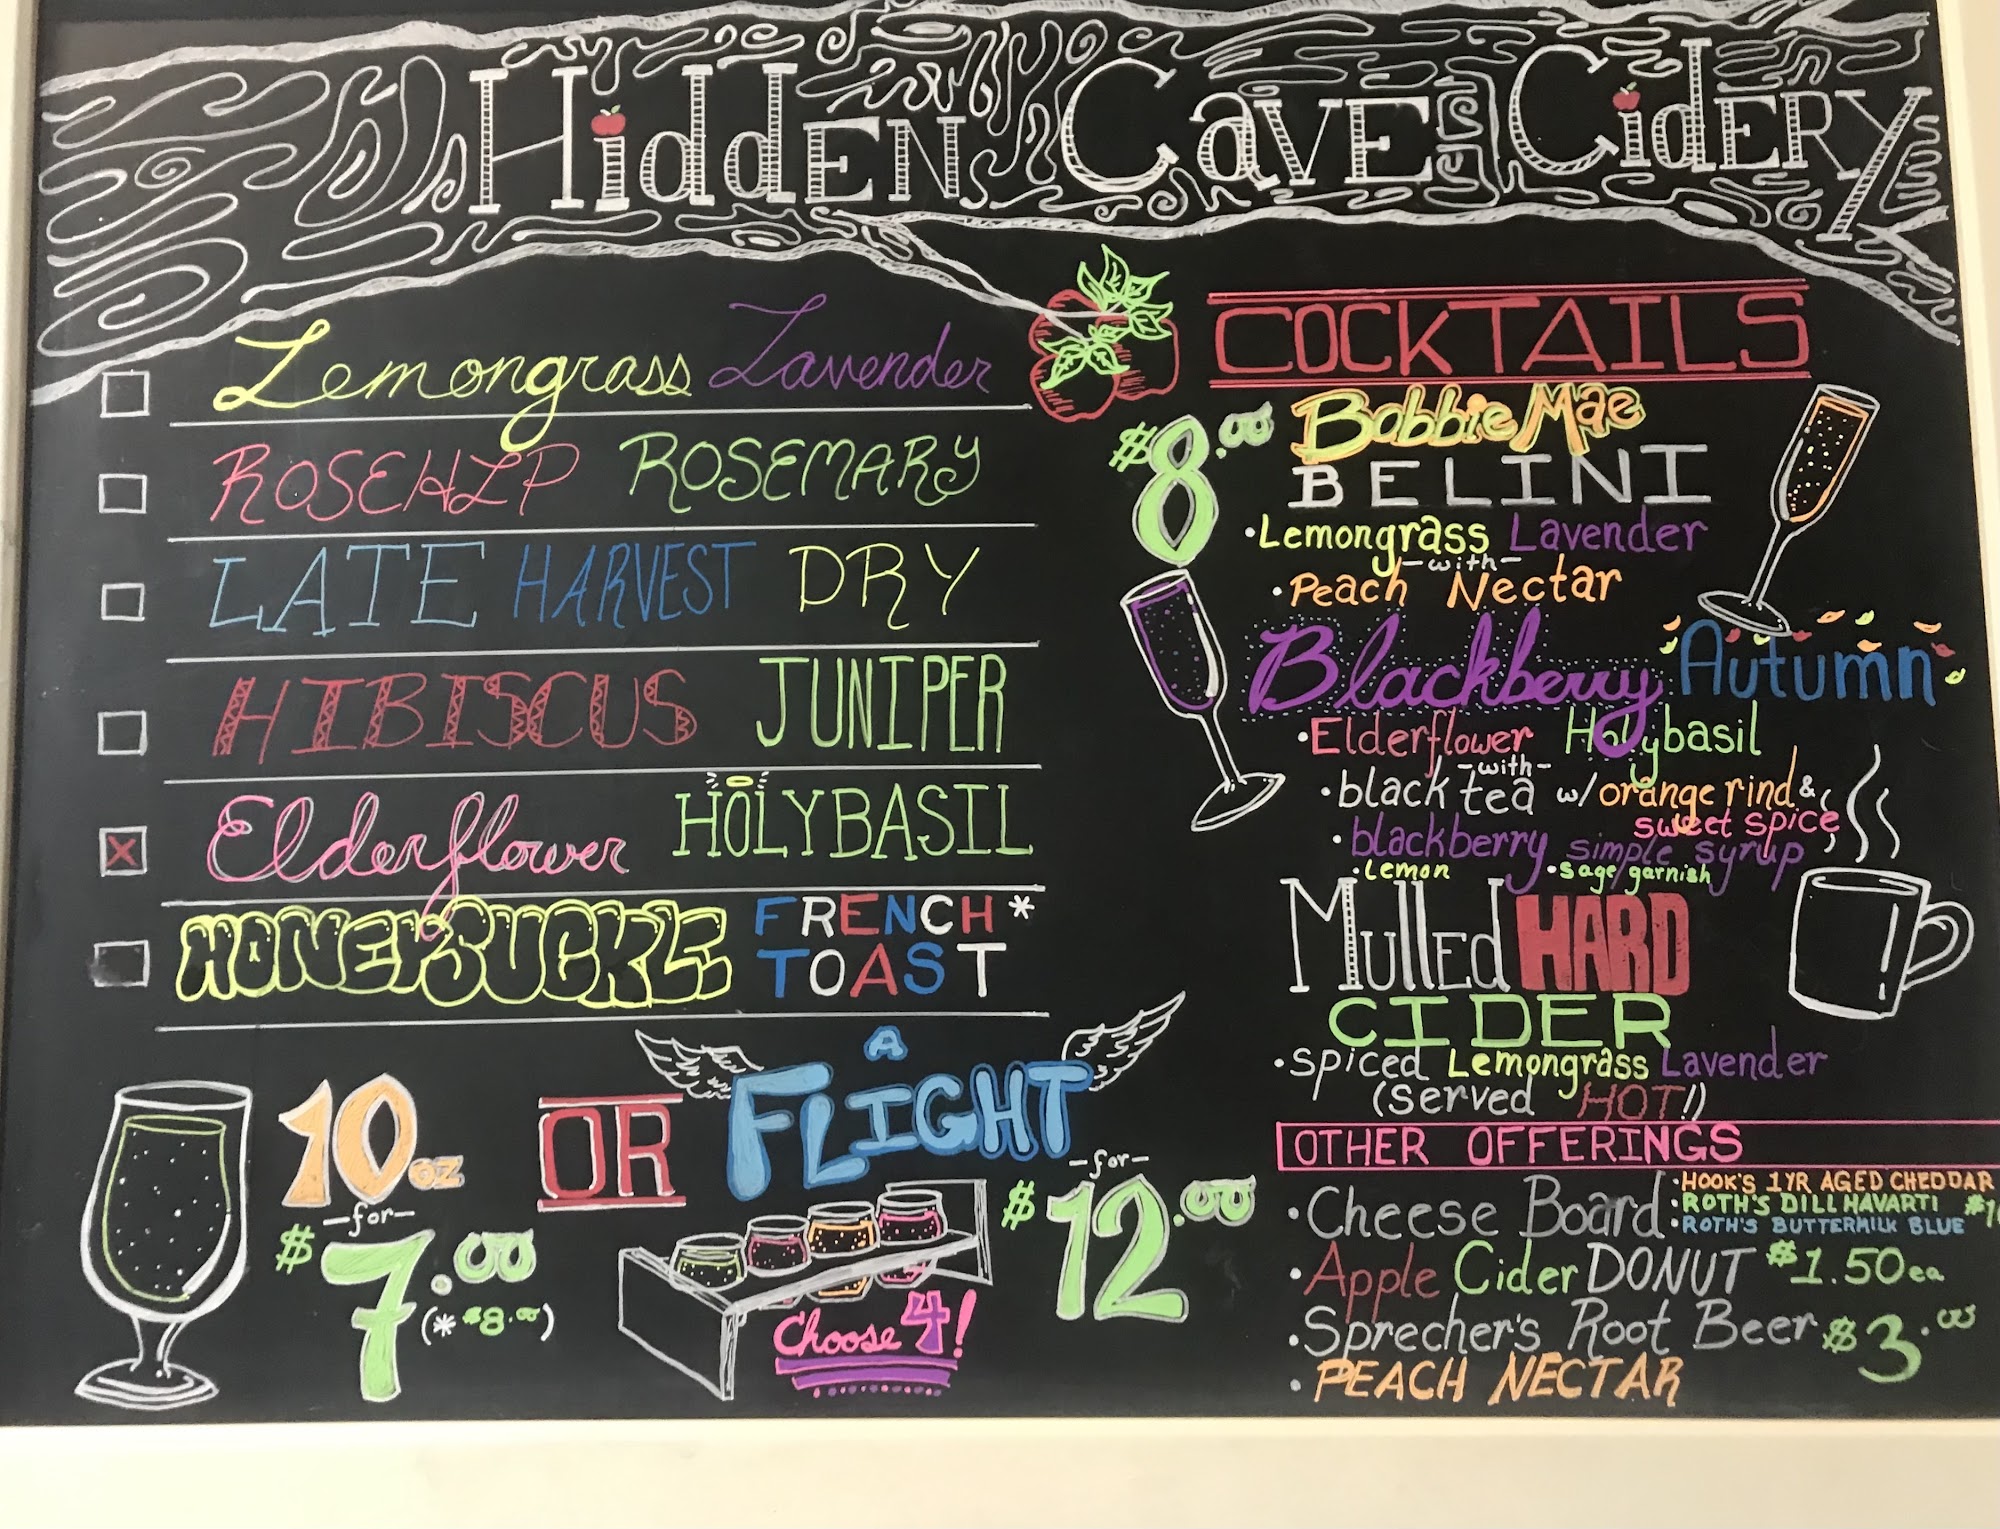 Hidden Cave Cidery
Lemongrass Lavender
ROSEHIP ROSEMARY
LATE HARVEST DRY
HIBISCUS JUNIPER
X Elderflower HOLYBASIL
HONEYSUCKLE FRENCH*
TOAST
10oz
-for-
$7.00
(*$8.00)
OR
A
FLIGHT
-for-
$12.00
Choose 4!
COCKTAILS
$8.00 Bobbie Mae
BELINI
•Lemongrass Lavender
-with-
•Peach Nectar
Blackberry Autumn
•Elderflower Holybasil
-with-
•black tea w/ orange rind &
sweet spice
•blackberry simple syrup
•Lemon •sage garnish
Mulled HARD
CIDER
•spiced Lemongrass Lavender
(Served HOT!)
OTHER OFFERINGS
•Cheese Board
•HOOK'S 1YR AGED CHEDDAR
•ROTH'S DILL HAVARTI
•ROTH'S BUTTERMILK BLUE
•Apple Cider DONUT $1.50ea
•Sprecher's Root Beer $3.00
•PEACH NECTAR